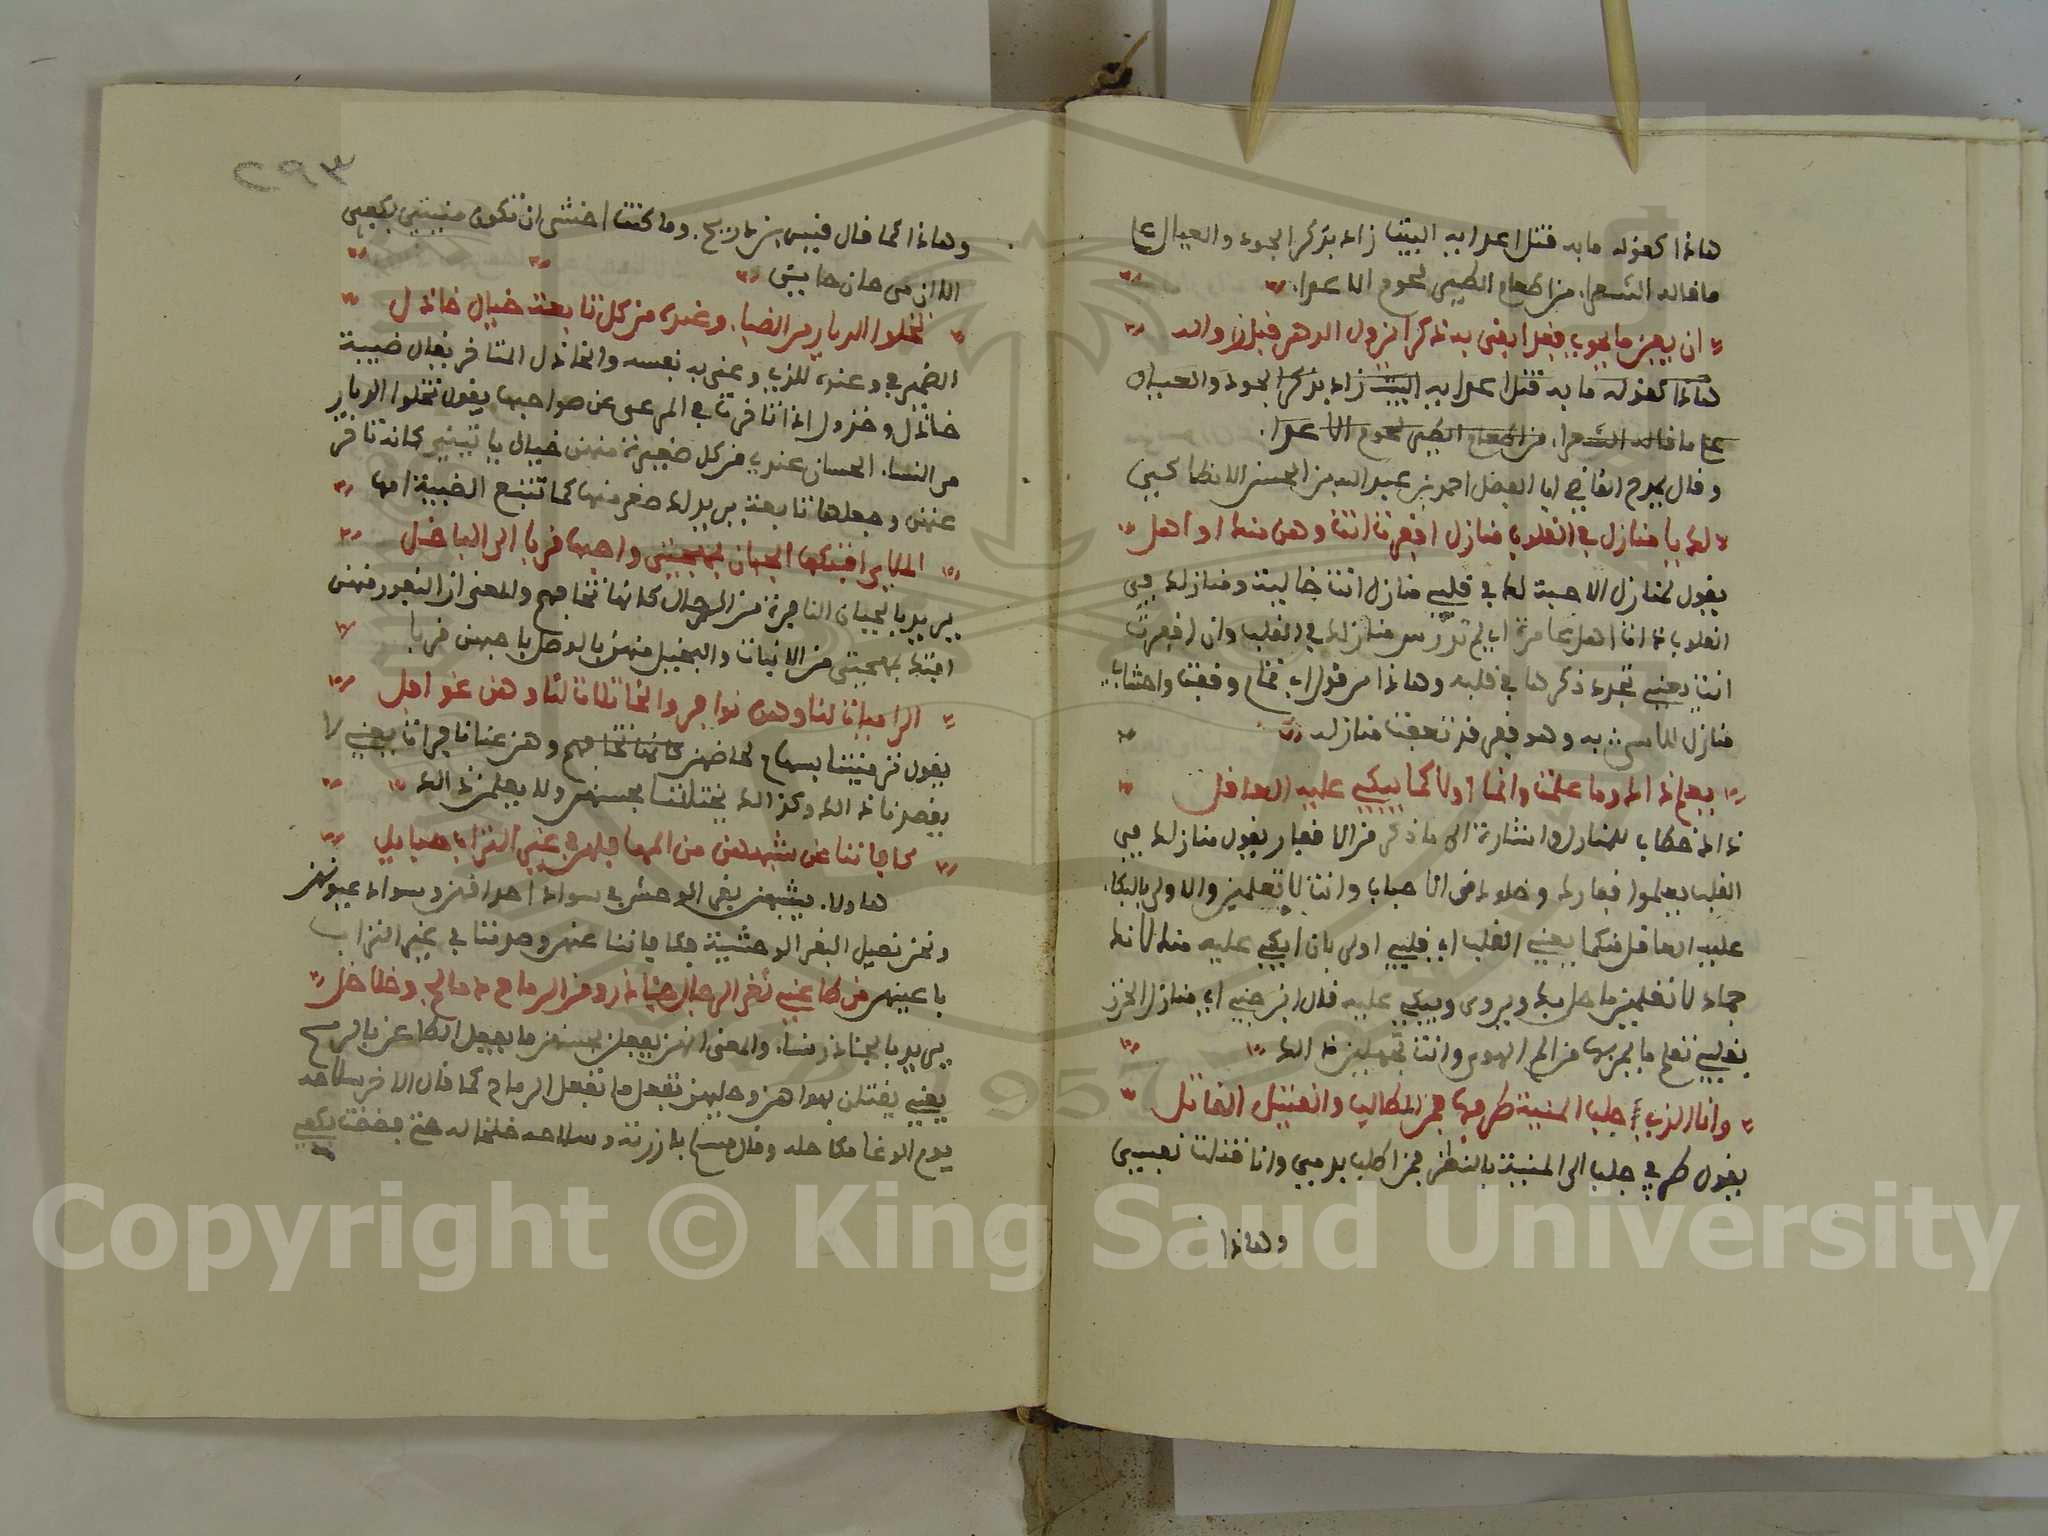 هاذا كقوله ما به قتل اعدايه البيت زاد بذكر الجود والعيال على
ما قاله الشعرا. من اطعام الطير لحوم الاعدا.
ان يعبر ما يجوب فعل ابقى به ذكرا يزول الدهر قبل زواله
هاذا كقوله ما به قتل اعدايه البيت زاد بذكر الجود والعيال
على ما قاله الشعرا. من اطعام الطير لحوم الاعدا.
وقال يمدح القاضي ابا الفضل احمد بن عبد الله بن الحسن الانطاكي
لك يا منازل في القلوب منازل اقفرت انت وهن منك اواهل
يقول لمنازل الاحبة لك في قلبي منازل انت خالية ومنازلك في
القلوب ذات اهل عامرة اي لم تدرس منازلك في القلب وان اقفرت
انت يعني تجدد ذكرها في قلبه وهاذا من قول ابي تمام وقفت واحشاي
منازل للاسى به وهو قفر قد تعفت منازله
يعلمن ذاك وما علمت وانما اولاكما يبكي عليه العاقل
ذاك خطاب للمنازل واشارة الى ما ذكر من الاقفار يقول منازلك في
القلب يعلموا قفارك وخلوك من الاحباب وانت لا تعلمين والاولى بالبكا.
عليه العاقل منكما يعني القلب اي فلبي اولى بان ابكي عليه منك لانك
جماد لا تعلمين ما حل بك ويروى ويبكي عليه قال ابن جني اي منازل الحزن
بقلبي تعلم ما يمر بها من الم الهوى وانت تجهلين ذلك
وانا الذي اجتلب المنية طرفه فمن المطالب والقتيل القاتل
يقول طرفي جلب الى المنية بالنظر فمن اطلب بدمي وانا قتلت نفسي
وهاذا
٣٩٢
وهاذا كما قال قيس بن ذريح. وما كنت اخشى ان تكون منيتي بكفي
الا ان من حان حاين
تخلوا الديار من الضبا. وعنده من كل تابعة خيال خاذل
الضمير في وعنده للذي وعنى به نفسه والخاذل المتاخر يقال ضبية
خاذل وخذول اذا تاخرت في المرعى عن صواحبها يقول تخلوا الديار
من النسا. الحسان عندي من كل ضبية منهن خيال ياتيني كانه تاخر
عنهن وجعلها تابعة يريد صغر سنها كما تتبع الضبية امها
اللا افتكها الجبان بمهجتي واحبها قربا الي الباخل
يريد بالجبان النافرة من الرجال كانها تخافهم والمعنى ان النفور منهن
افتك بمهجتي من الانيات والبخيل منهن بالوصل احبهن قربا
الراميات لنا وهن نوافر والخاتلات لنا وهن غوافل
يقول ترميننا بسهام لحاضهن كانما تخافهم وهن عنا نافرات يعني لا
يقصدن ذلك وكذلك يختلننا بحسنهن ولا يعلمن ذلك
كافاننا عن شبههن من المها فلهن في غير التراب حبايل
هاولا. يشبهن بقر الوحش في سواد احداقهن وسواد عيونهن
ونحن نصيد البقر الوحشية فكافاننا عنهن وصدننا في غير التراب
باعينهن من طاعني ثغر الرجال جناذر ومن الرماح دمالج وخلاخل
يريد بالجناذر نسا. والمعنى انهن يفعلن بحسنهن ما يفعل الطاعن بالرمح
يعني يقتلن بهواهن وحليهن تفعل ما تفعل الرماح كما قال الاخر سلاحه
يوم الوغا مكاحله وقال مسلم بارزته وسلاحه خلخاله حتى فضضت بكفي